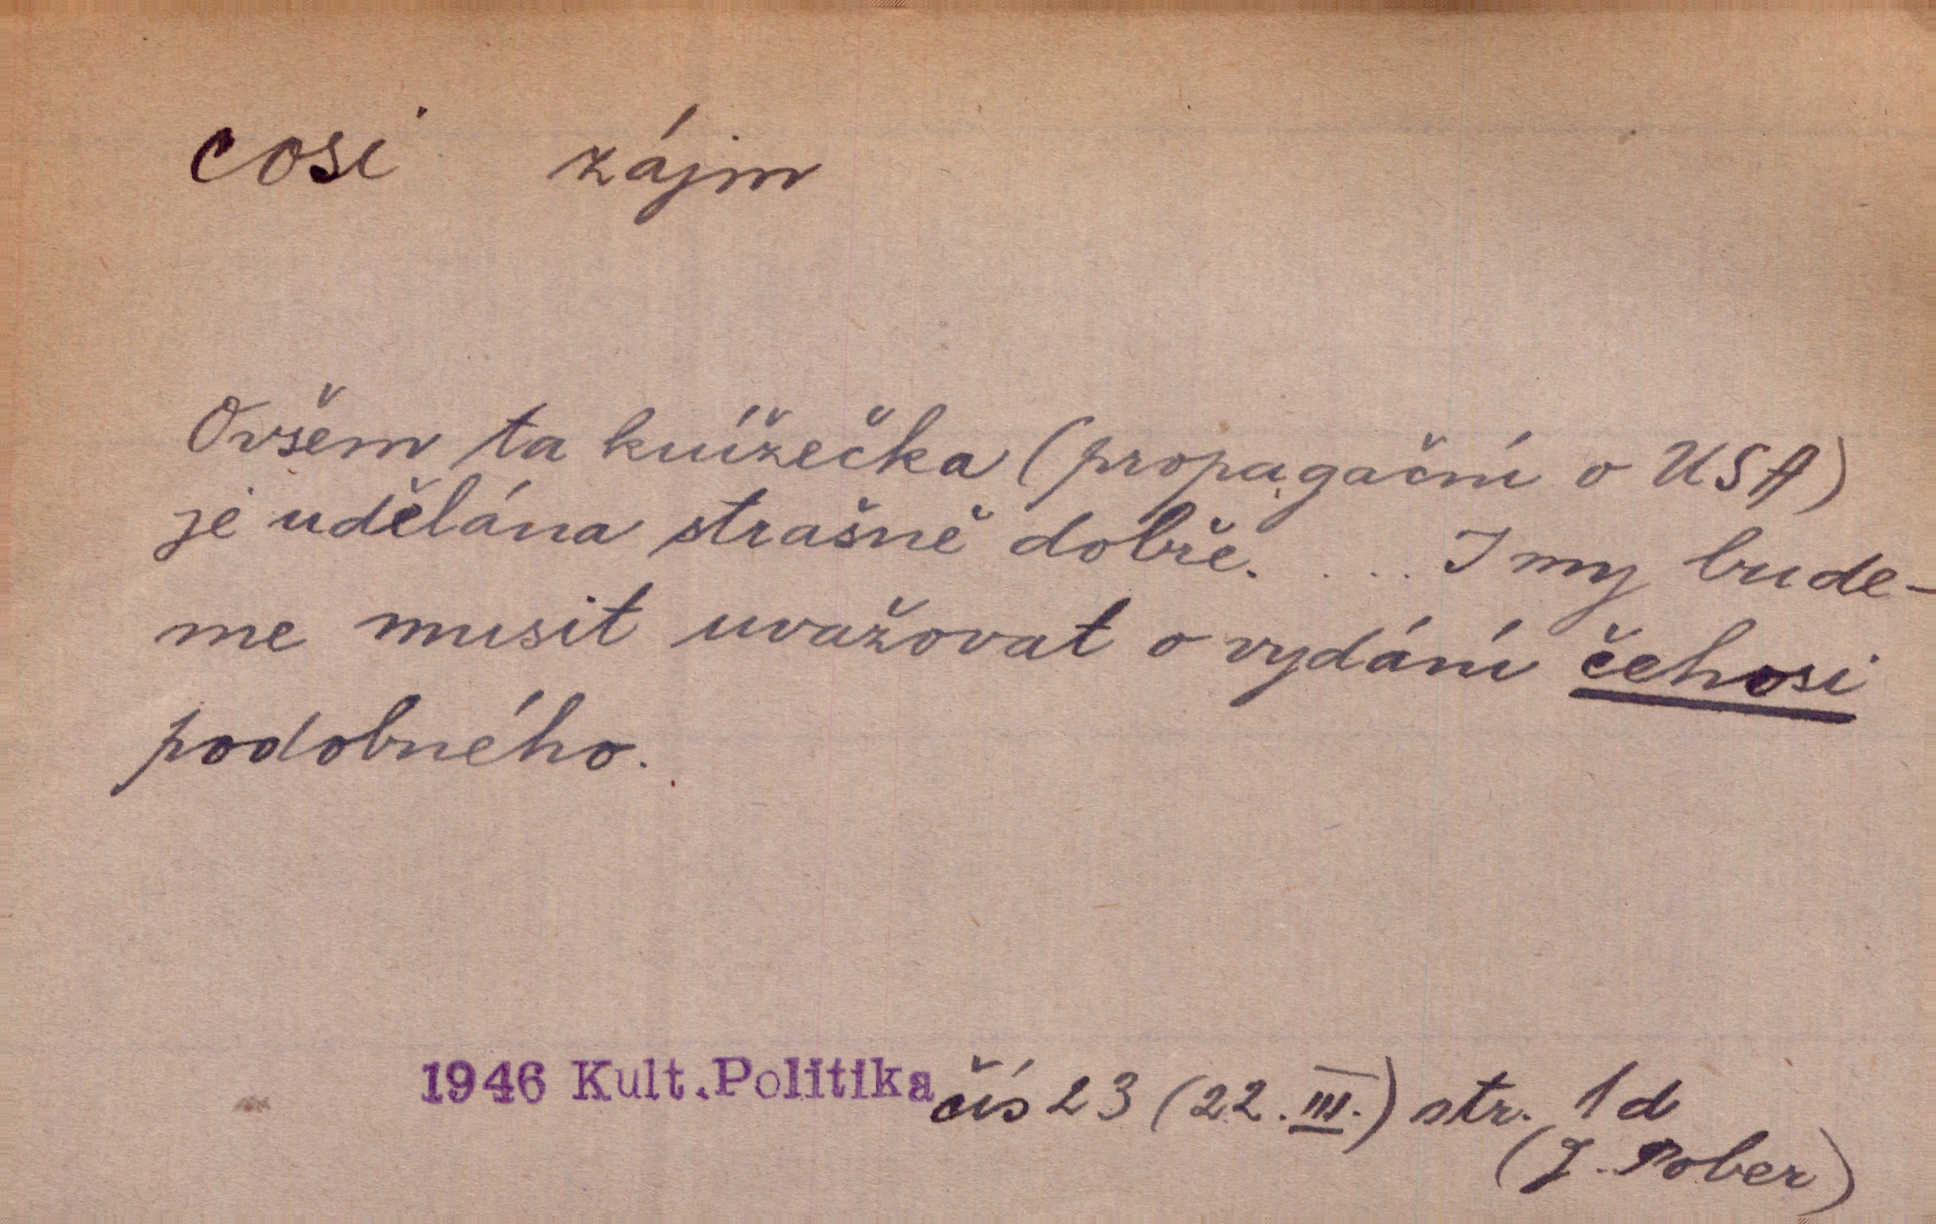 cosi zájm
Ovšem ta knížečka (propagační o USA)
je udělána strašně dobře. ... I my bude-
me musit uvažovat o vydání čehosi
podobného.
1946 Kult.Politika čís 23 (22. III.) str. 1d
(J. Pober)